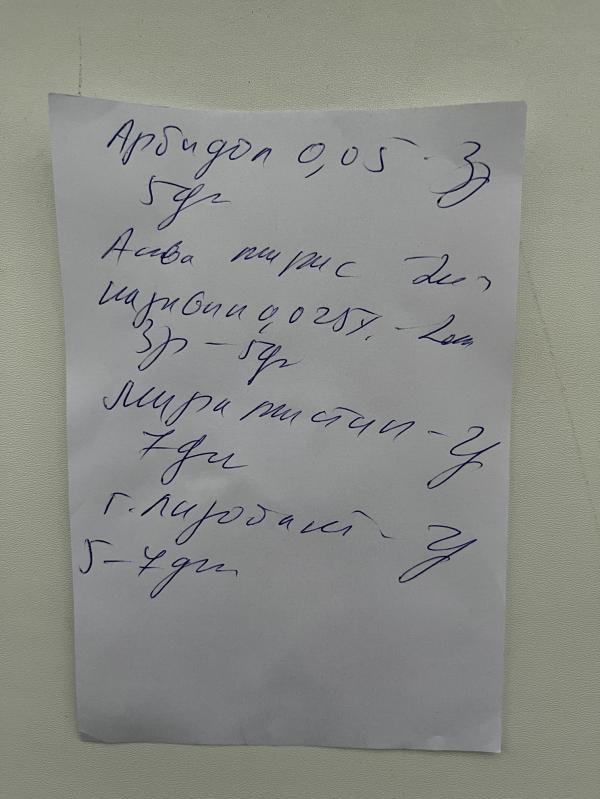 Арбидол 0,05 - 3р
5дн
Аква марис
називин 0,025%. - 2кап
3р - 5дн
Мирамистин -
7дн
т. лизобакт -
5-7дн